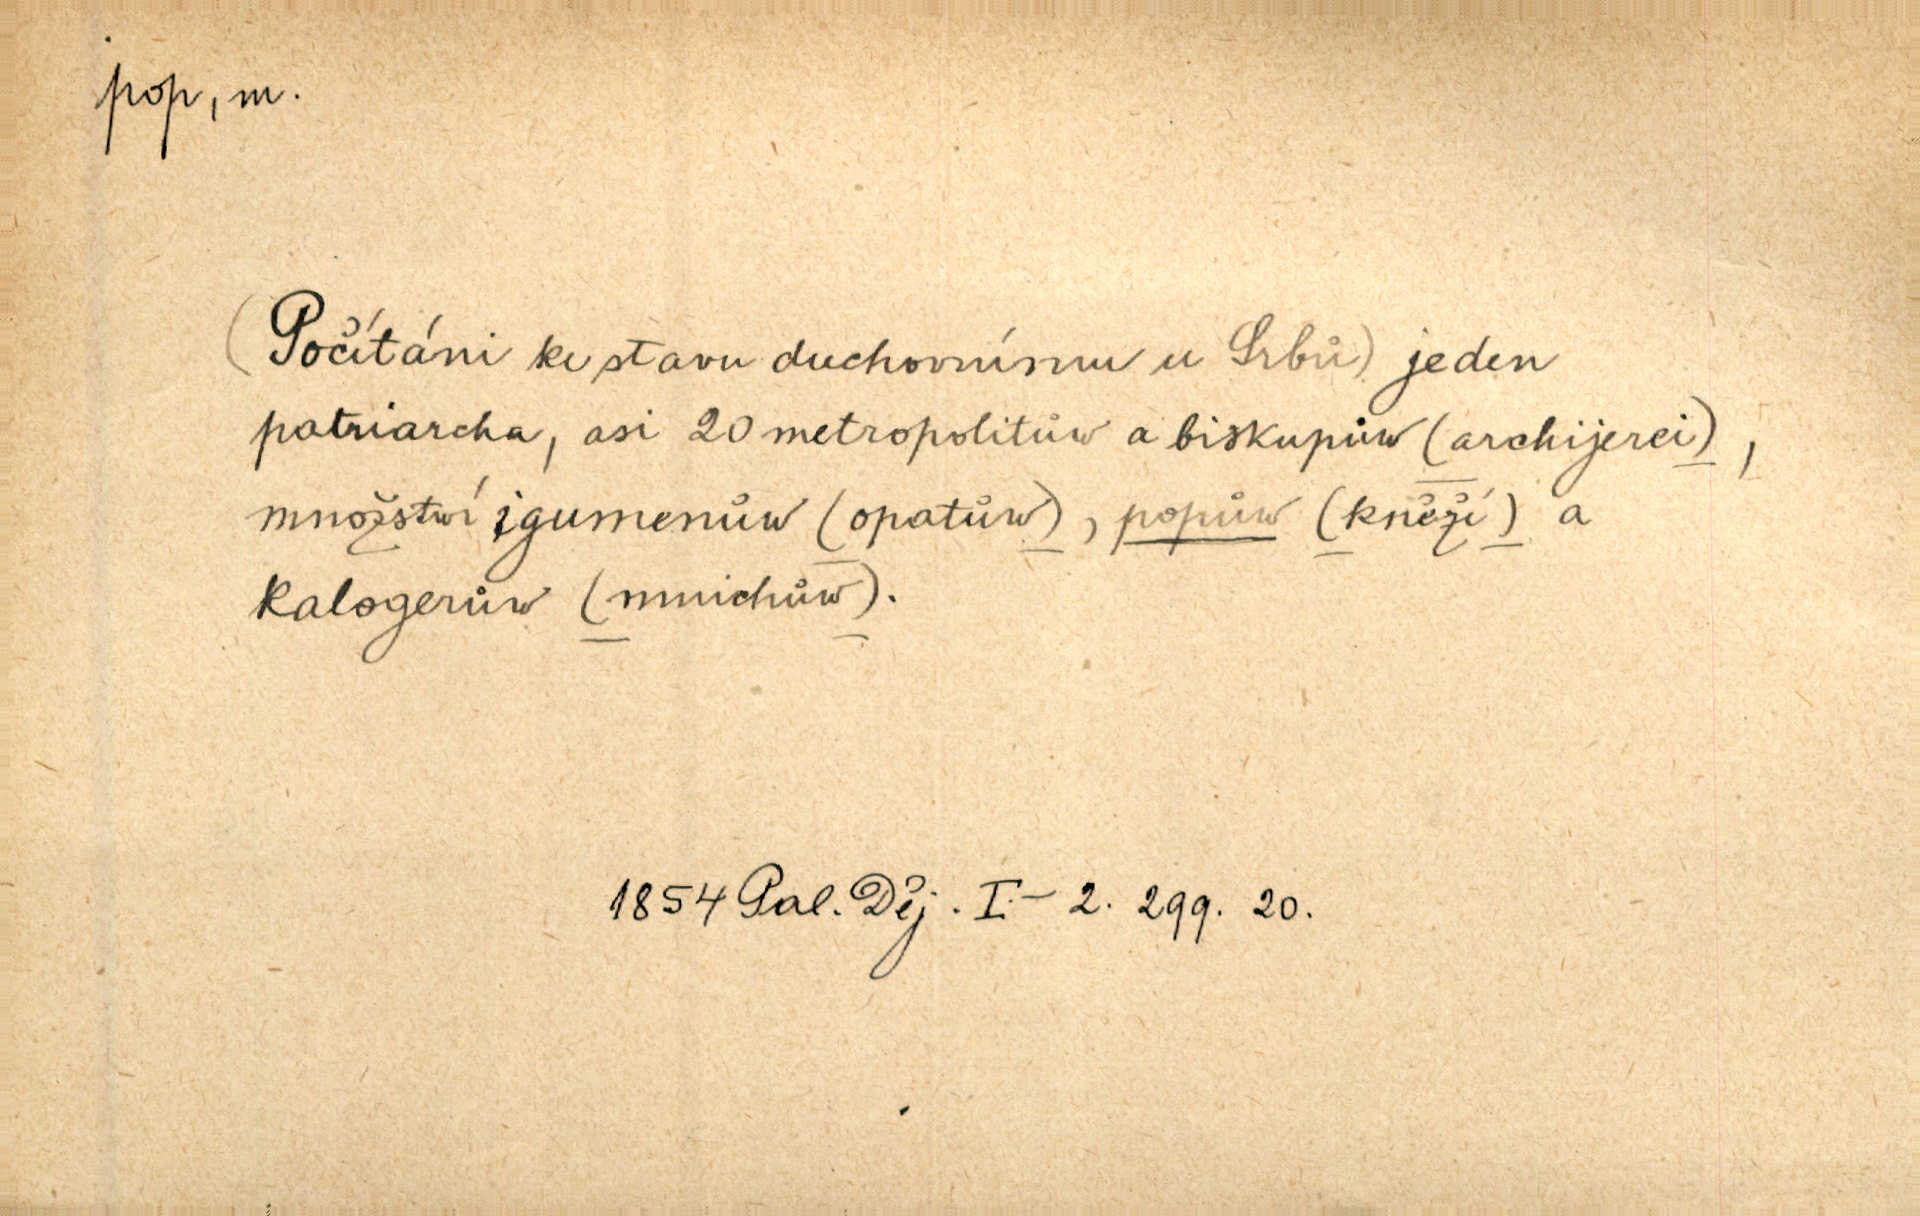 pop, m.
(Počítáni ke stavu duchovnímu u Srbů) jeden
patriarcha, asi 20 metropolitůw a biskupůw (archijerei),
množstwí igumenůw (opatůw), popůw (kněží) a
kalogerůw (mnichůw).
1854 Pal. Děj. I.- 2. 299. 20.